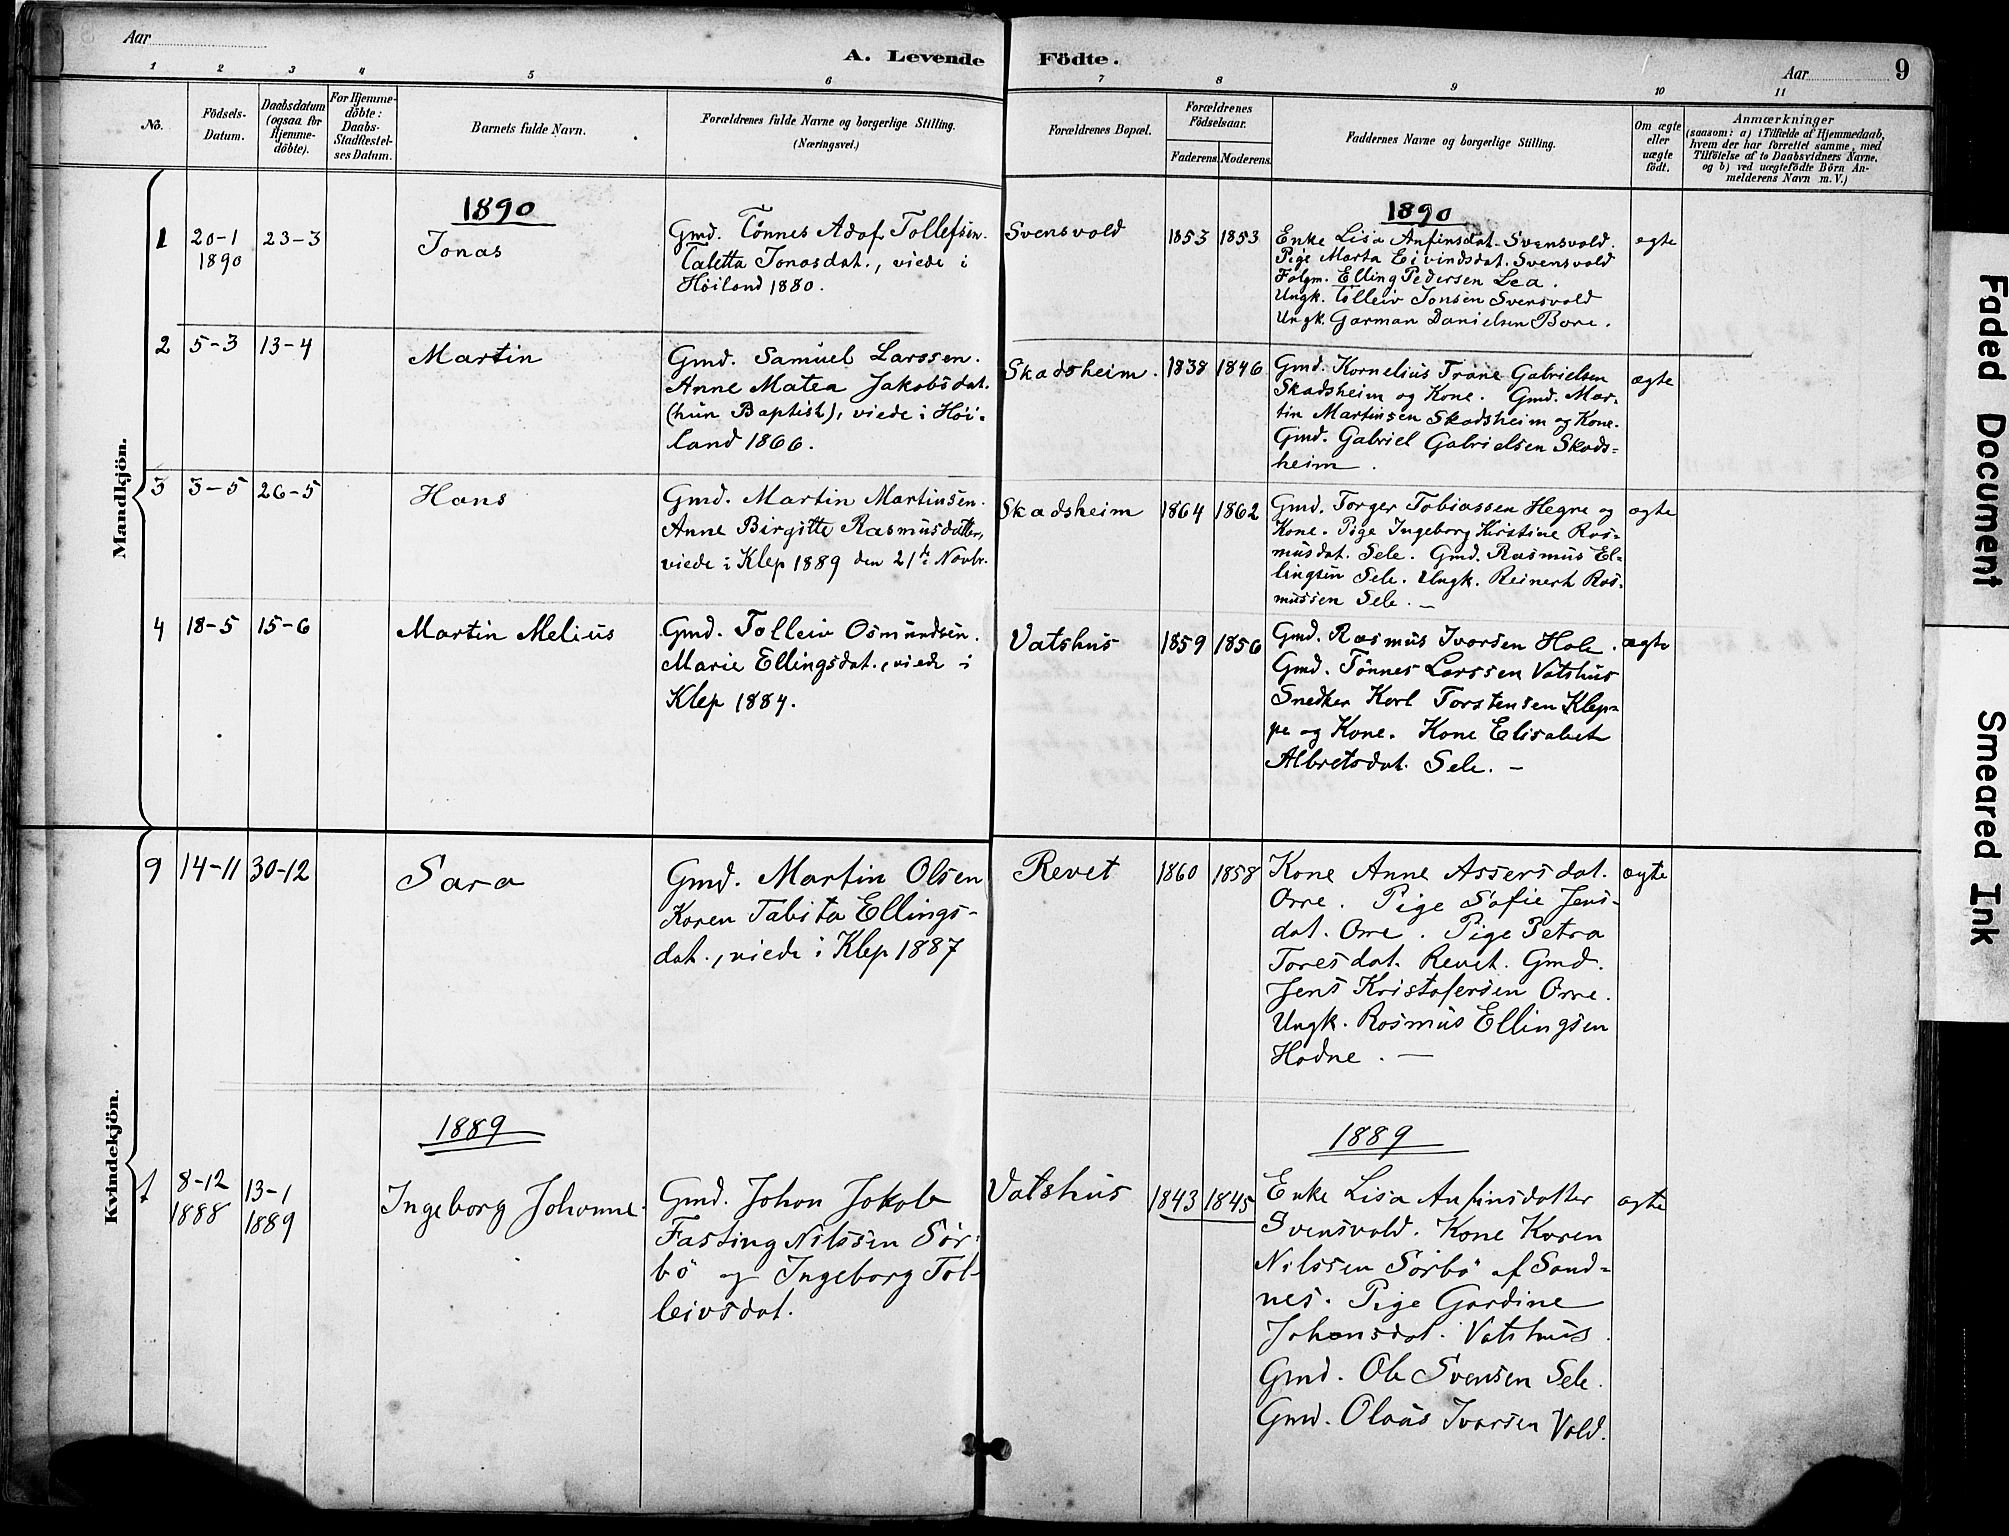 Aar
A. Levende Födte.
Aar
9
1 2 3 4 5 6 7 8 9 10 11
No.
Födsels-
Datum.
Daabsdatum
(ogsaa for
Hjemme-
döbte).
For Hjemme-
döbte:
Daabs-
Stadfæstel-
ses Datum.
Barnets fulde Navn.
Forældrenes fulde Navne og borgerlige Stilling.
(Næringsvei.)
Forældrenes Bopæl.
Forældrenes
Födselsaar.
Faderens. Moderens.
Faddernes Navne og borgerlige Stilling.
Om ægte
eller
uægte
født.
Anmærkninger
(saasom: a) i Tilfælde af Hjemmedaab,
hvem der har forrettet samme, med
Tilföielse af to Daabsvidners Navne,
og b) ved uægtefödte Börn An-
melderens Navn m. V.)
Mandkjön.
1890
1
20-1
1890
23-3
Jonas
Gmd. Tönnes Adof Tollefsen.
Taletta Jonasdat., viede i
Höiland 1880.
Svensvold
1853 1853
1890
Enke Lisa Anfinsdat. Svensvold.
Pige Marta Eivindsdat. Svensvold
Følgm. Elling Pedersen Lea.
Ungk. Tolleiv Jonsen Svensvold
Ungk. Garman Danielsen Bore.
ægte
2
5-3
13-4
Martin
Gmd. Samuel Larssen.
Anne Matea Jakobsdat.
(hun Baptist), viede i Höi-
land 1866.
Skadsheim.
1838 1846
Gmd. Kornelius Trane Gabrielsen
Skadsheim og Kone. Gmd. Mar-
tin Martinsen Skadsheim og Kone.
Gmd. Gabriel Gabrielsen Skads-
heim.
ægte
3
3-5
26-5
Hans
Gmd. Martin Martinsen.
Anne Birgitte Rasmusdatter,
viede i Klep 1889 den 21de Novbr.
Skadsheim
1864 1862
Gmd. Torger Tobiassen Hegre og
Kone. Pige Ingeborg Kirstine Ras-
musdat. Sele. Gmd. Rasmus El-
lingsen Sele. Ungk. Reinert Ras-
mussen Sele. —
ægte
4
18-5
15-6
Martin Melius
Gmd. Tolleiv Osmundsen.
Marie Ellingsdat., viede i
Klep 1884.
Vatshus
1859 1856
Gmd. Rasmus Ivarsen Hole.
Gmd. Tönnes Larssen Vatshus
Snedker Karl Torstensen Klep-
pe og Kone. Kone Elisabet
Albretsdat. Sele. —
ægte
Kvindekjön.
9
14-11
30-12
Sara
Gmd. Martin Olsen
Karen Tabita Ellings-
dat., viede i Klep 1887
Revet
1860 1858
Kone Anne Assersdat.
Orre. Pige Sofie Jens-
dat. Orre. Pige Petra
Toresdat. Revet. Gmd.
Jens Kristofersen Orre.
Ungk. Rasmus Ellingsen
Hodne. —
ægte
1889
1
8-12
1888
13-1
1889
Ingeborg Johanne
Gmd. Johan Jakob
Fasting Nilssen Sör-
bö og Ingeborg Tol-
leivsdat.
Vatshus
1843 1845
1889
Enke Lisa Anfinsdatter
Svensvold. Kone Karen
Nilssen Sörbö af Sand-
nes. Pige Gardine
Johansdat. Vatshus.
Gmd. Ole Svensen Sele.
Gmd. Olaus Ivarsen Vold.
ægte
Faded Document
Smeared Ink